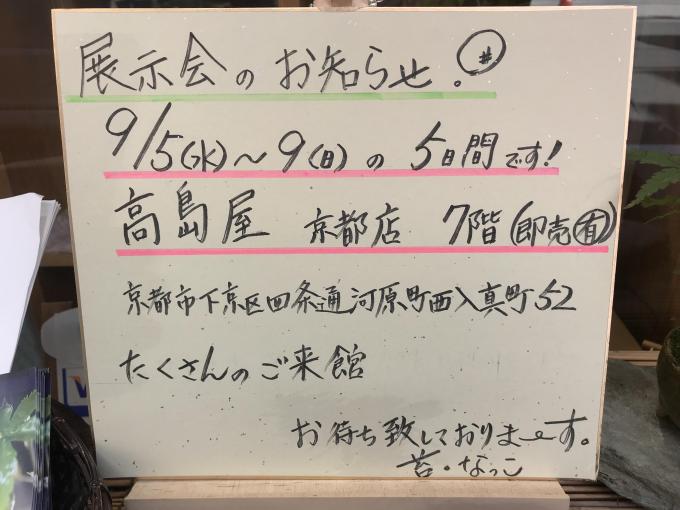 展示会のお知らせ。#
9/5(水)〜9(日)の5日間です!
高島屋 京都店 7階(即売有)
京都市下京区四条通河原町西入真町52
たくさんのご来館
お待ち致しておりまーす。
苔・なっこ